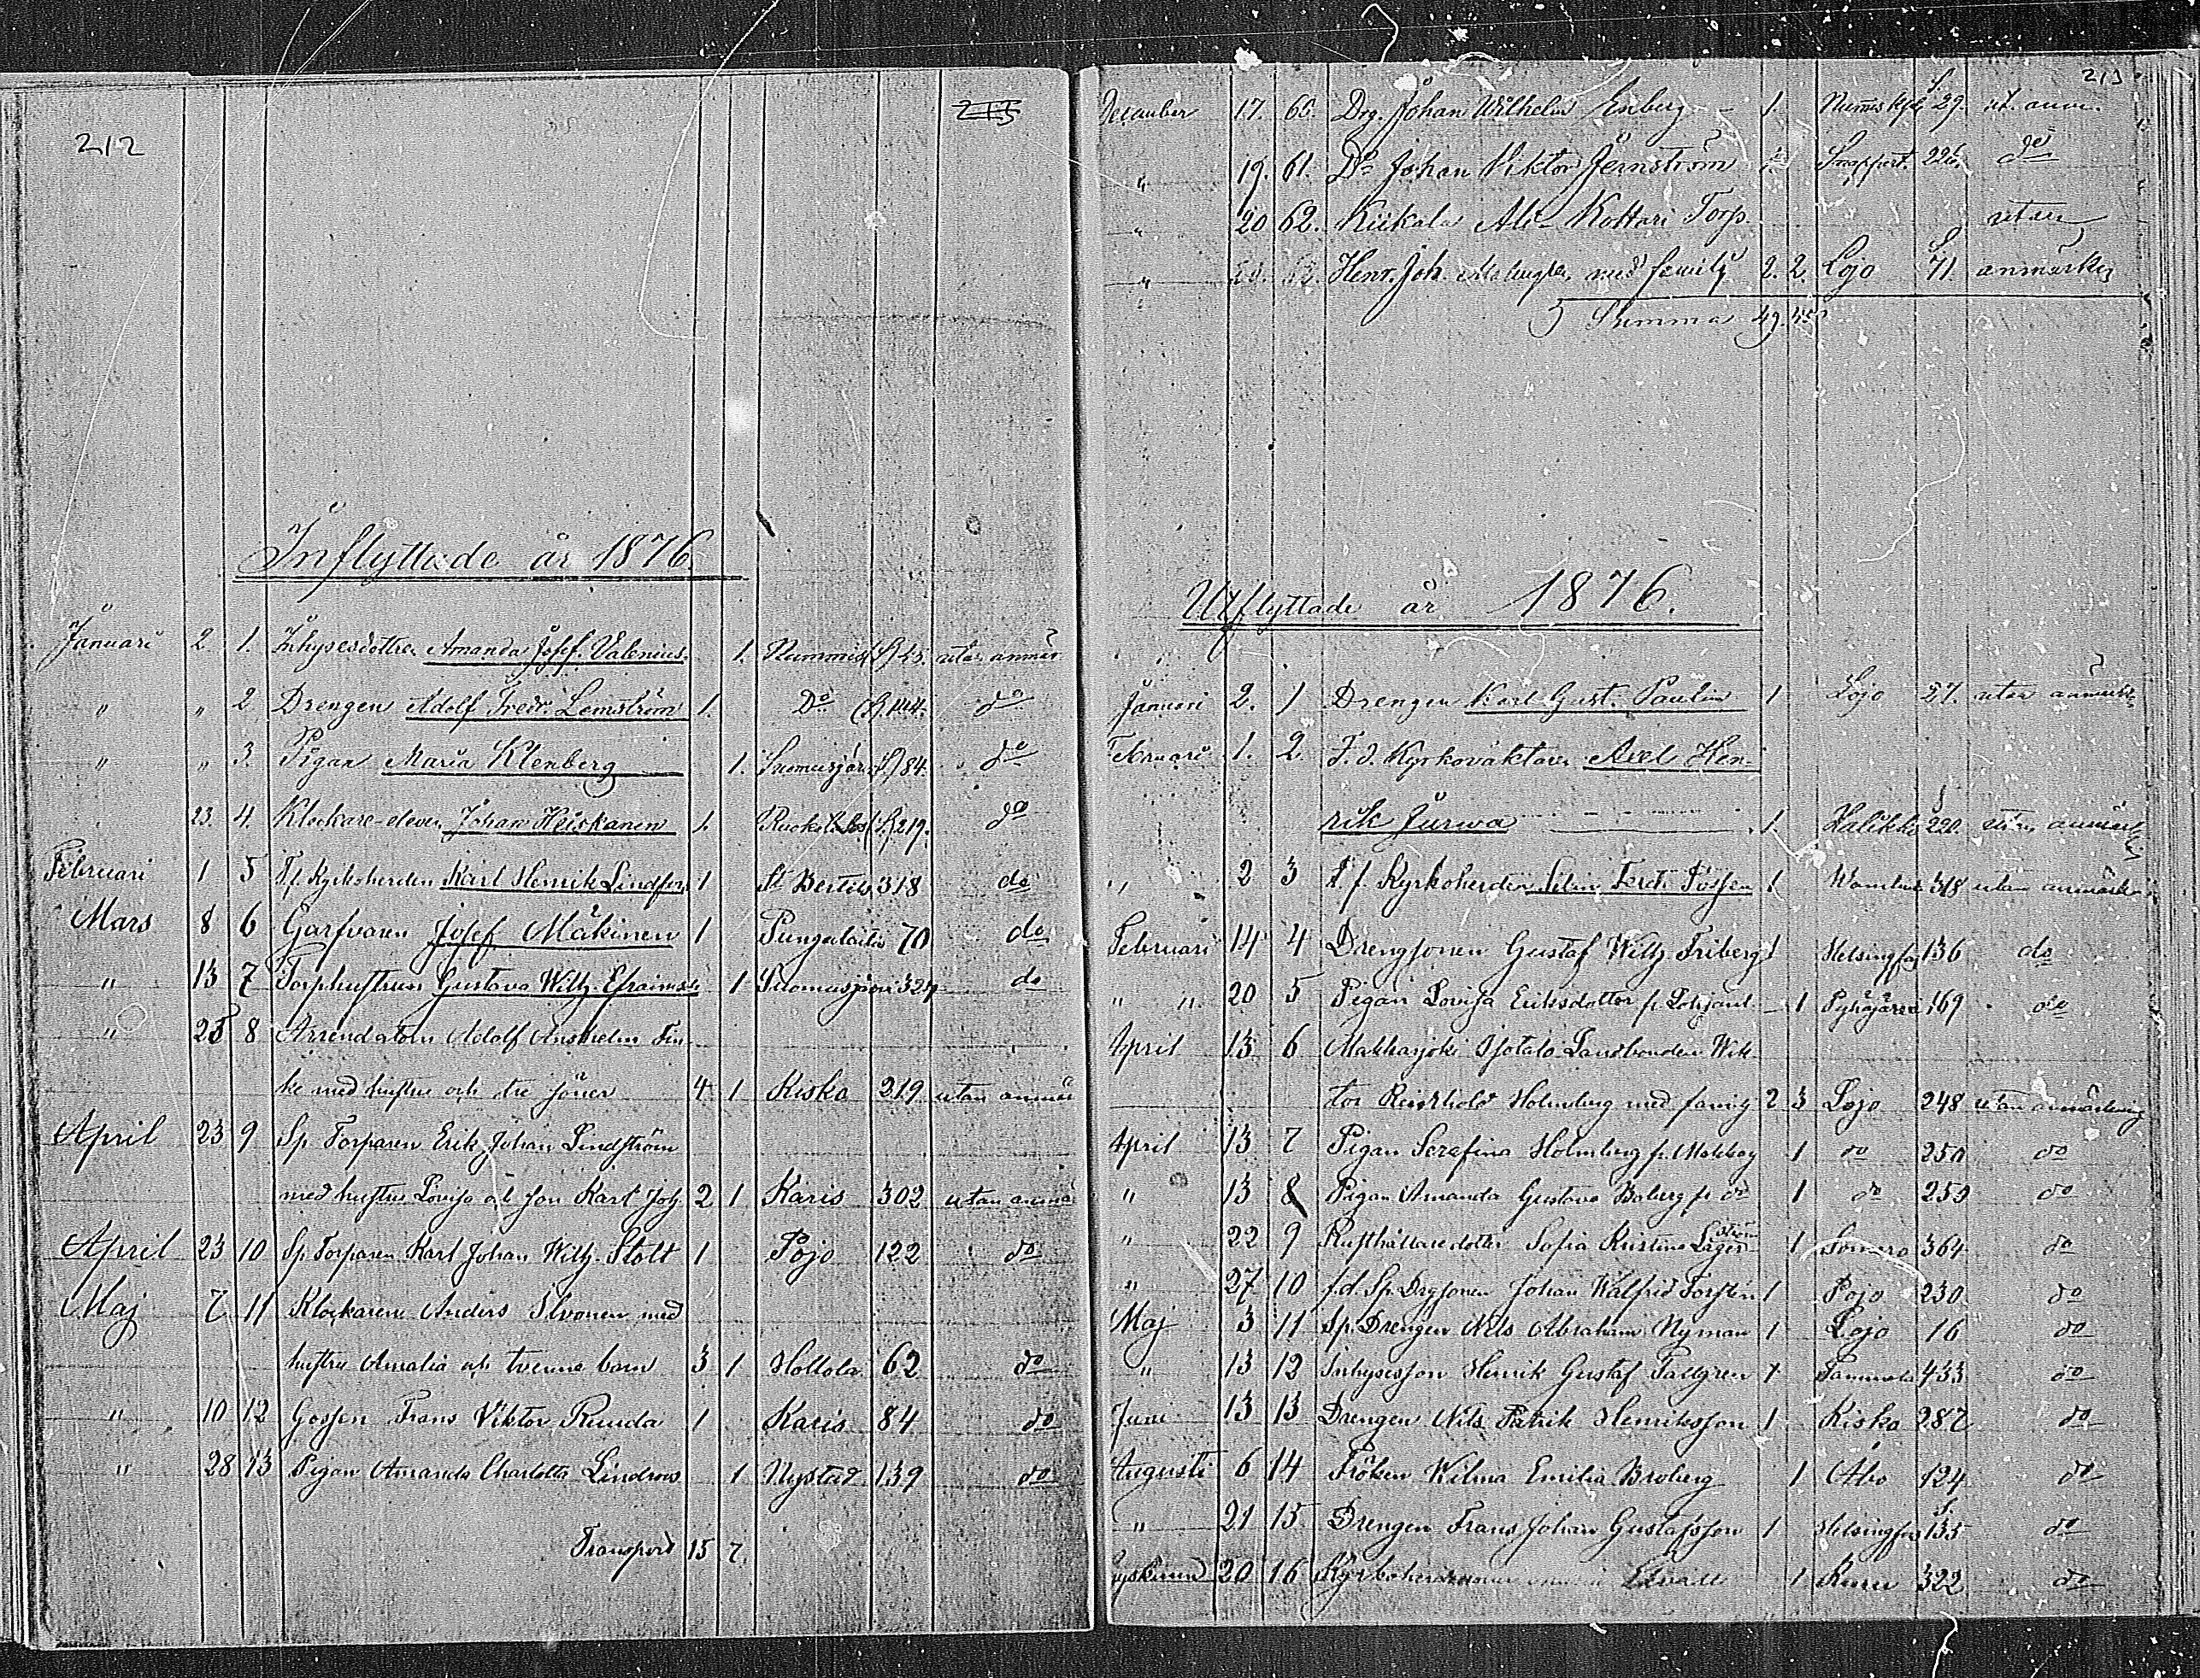 212
Inflyttade år 1876.
Januari 2. 1. Inhysesdottren Amanda Josef. Valenius. 1. Nummis (S) 45. utan anmär
" " 2 Drengen Adolf Fredr. Lemström 1. Do (S. 144. do
" " 3. Pigan Maria Klenberg 1. Suomusjärvi (S) 84. do
23. 4. Klockare-eleven Johan Heiskanen 1. (S. 219. do
Februari 1 5 T.f. Kyrkoherden Karl Henrik Lindfors 1 St Bertils 318 do
Mars 8 6 Garfvaren Josef Mäkinen 1 Pungalaitio 70 do
" 13 7 Torphustrun Gustava Wilh. Efraimsd. 1 Suomusjärvi 324 do
" 25 8 Arrendatorn Adolf Anshelm Fin-
ke med hustru och tre söner 4 1 Kisko 219 utan anmär
April 23 9 Sp. Torparen Erik Johan Lindström
med hustru Lovisa och son Karl Joh. 2 1 Karis 302 utan anmä
April 23 10 Sp. Torparen Karl Johan Wilh. Stolt 1 Pojo 122 do
Maj 7 11 Klockaren Anders Ilvonen med
hustru Amalia och tvenne barn 3 1 Hollola 62 do
" 10 12 Gossen Frans Viktor Ruuda 1 Karis 84 do
" 28 13 Pigan Amanda Charlotta Lindroos 1 Nystad 139 do
Transport 15 7.
213
December 17. 60. Drg. Johan Wilhelm Enberg - 1. Nummis kpl. S. 29. ut. anm.
" 19. 61. Do Johan Viktor Jernström 1. Snappert. 226. do
" 20 62. Kiikala Ali-Kottari Torp. utan
" Henr. Joh. med familj 2. 2. Lojo S. 71. anmärkn
Summa 49. 45
Utflyttade år 1876.
Januari 2. 1 Drengen Karl Gust. Paulin 1 Lojo 27. utan anmärkn
Februari 1. 2. F. d. Kyrkovaktaren Axel Hen-
rik Jurwa 1. Halikko S. 220. utan anmärkn
" 2 3 T. f. Kyrkoherden 1 318 utan anmärkn
Februari 14 4 Drengsonen Gustaf Wilh. Friberg 1 Helsingfors 136 do
" " 20 5 Pigan Lovisa Eriksdotter fr. 1 Pyhäjärvi 169 do
April 13 6 Makkarjoki Isotalo Landbonden Wik-
tor Reinhold Holmberg med familj 2 3 Lojo 248 utan anmärkning
April 13 7 Pigan Serafina Holmberg fr. Makkarj 1 do 250 do
" 13 8 Pigan Amanda Gustava Boberg fr do 1 do 250 do
" 22 9 Rusthållaredotter Sofia Kristina Lagerström 1 Somero 364 do
" 27 10 f.d. Sp. Drgsonen Johan Walfrid Forsten 1 Pojo 230 do
Maj 3 11 Sp. Drengen Nils Abraham Nyman 1 Lojo 16 do
" 13 12 Inhysesson Henrik Gustaf Tallgren 1 Tammela 433 do
Juni 13 13 Drengen Nils Patrik Henriksson 1 Kisko 287 do
Augusti 6 14 Fröken Wilma Emilia Broberg 1 Åbo 124 do
" 21 15 Drengen Frans Johan Gustafsson 1 Helsingfors S. 135 do
20 16 1 322 do